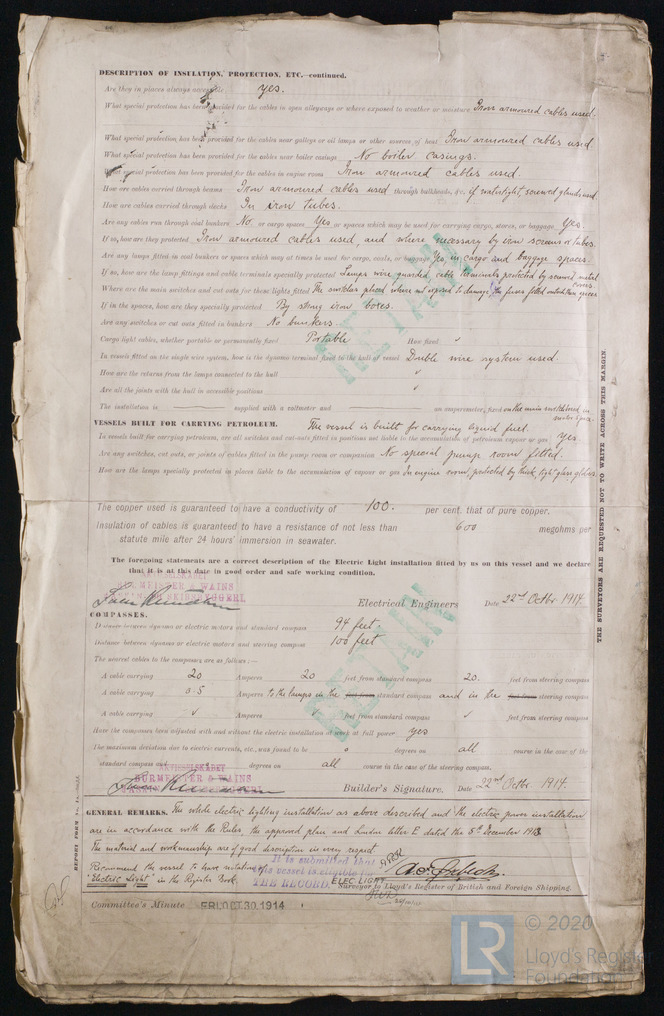 DESCRIPTION OF INSULATION, PROTECTION, ETC.—continued.
Are they in places always accessible yes.
What special protection has been provided for the cables in open alleyways or where exposed to weather or moisture Iron armoured cables used.
What special protection has been provided for the cables near galleys or oil lamps or other sources of heat Iron armoured cables used
What special protection has been provided for the cables near boiler casings No boiler casings.
What special protection has been provided for the cables in engine room Iron armoured cables used.
How are cables carried through beams Iron armoured cables used through bulkheads, &c. if watertight, screwed glands used
How are cables carried through decks In iron tubes.
Are any cables run through coal bunkers No or cargo spaces Yes or spaces which may be used for carrying cargo, stores, or baggage Yes.
If so, how are they protected Iron armoured cables used, and where necessary by iron screens or tubes.
Are any lamps fitted in coal bunkers or spaces which may at times be used for cargo, coals, or baggage Yes, in cargo and baggage spaces.
If so, how are the lamp fittings and cable terminals specially protected Lamps wire guarded, cable terminals protected by screwed metal covers.
Where are the main switches and cut outs for these lights fitted The switches placed where not exposed to damage, the fuses fitted outside these spaces
If in the spaces, how are they specially protected By strong iron boxes.
Are any switches or cut outs fitted in bunkers No bunkers.
Cargo light cables, whether portable or permanently fixed Portable How fixed "
In vessels fitted on the single wire system, how is the dynamo terminal fixed to the hull of vessel Double wire system used.
How are the returns from the lamps connected to the hull "
Are all the joints with the hull in accessible positions "
The installation is supplied with a voltmeter and an amperemeter, fixed on the main switchboard, on
VESSELS BUILT FOR CARRYING PETROLEUM. The vessel is built for carrying liquid fuel.
In vessels built for carrying petroleum, are all switches and cut-outs fitted in positions not liable to the accumulation of petroleum vapour or gas yes
Are any switches, cut outs, or joints of cables fitted in the pump room or companion No special pump room fitted.
How are the lamps specially protected in places liable to the accumulation of vapour or gas In engine room, protected by thick, tight glass globes.
The copper used is guaranteed to have a conductivity of 100. per cent. that of pure copper.
Insulation of cables is guaranteed to have a resistance of not less than 600 megohms per
statute mile after 24 hours' immersion in seawater.
The foregoing statements are a correct description of the Electric Light installation fitted by us on this vessel and we declare
that it is at this date in good order and safe working condition.
AKTIESELSKABET
BURMEISTER & WAINS
Electrical Engineers Date 22nd Octbr 1914.
COMPASSES.
Distance between dynamo or electric motors and standard compass 94 feet
Distance between dynamo or electric motors and steering compass 100 feet
The nearest cables to the compasses are as follows:—
A cable carrying 20 Amperes 20 feet from standard compass 20. feet from steering compass
A cable carrying 0.5 Amperes to the lamps in the standard compass and in the steering compass
A cable carrying Amperes feet from standard compass feet from steering compass
Have the compasses been adjusted with and without the electric installation at work at full power yes
The maximum deviation due to electric currents, etc., was found to be o degrees on all course in the case of the
standard compass and degrees on all course in the case of the steering compass.
AKTIESELSKABET
BURMEISTER & WAINS
Builder's Signature. Date 22nd Octbr 1914.
GENERAL REMARKS. The whole electric lighting installation as above described and the electric power installation
are in accordance with the Rules, the approved plan and London letter E dated the 5th December 1913.
The material and workmanship are of good description in every respect.
Recommend the vessel to have notation of
"Electric Light" in the Register Book.
It is submitted that
this vessel is eligible for
THE RECORD. ELEC LIGHT
Surveyor to Lloyd's Register of British and Foreign Shipping.
Committee's Minute FRI. OCT. 30. 1914
THE SURVEYORS ARE REQUESTED NOT TO WRITE ACROSS THIS MARGIN.
RETAIN
RETAIN
© 2020
LR
Lloyd's Register
Foundation